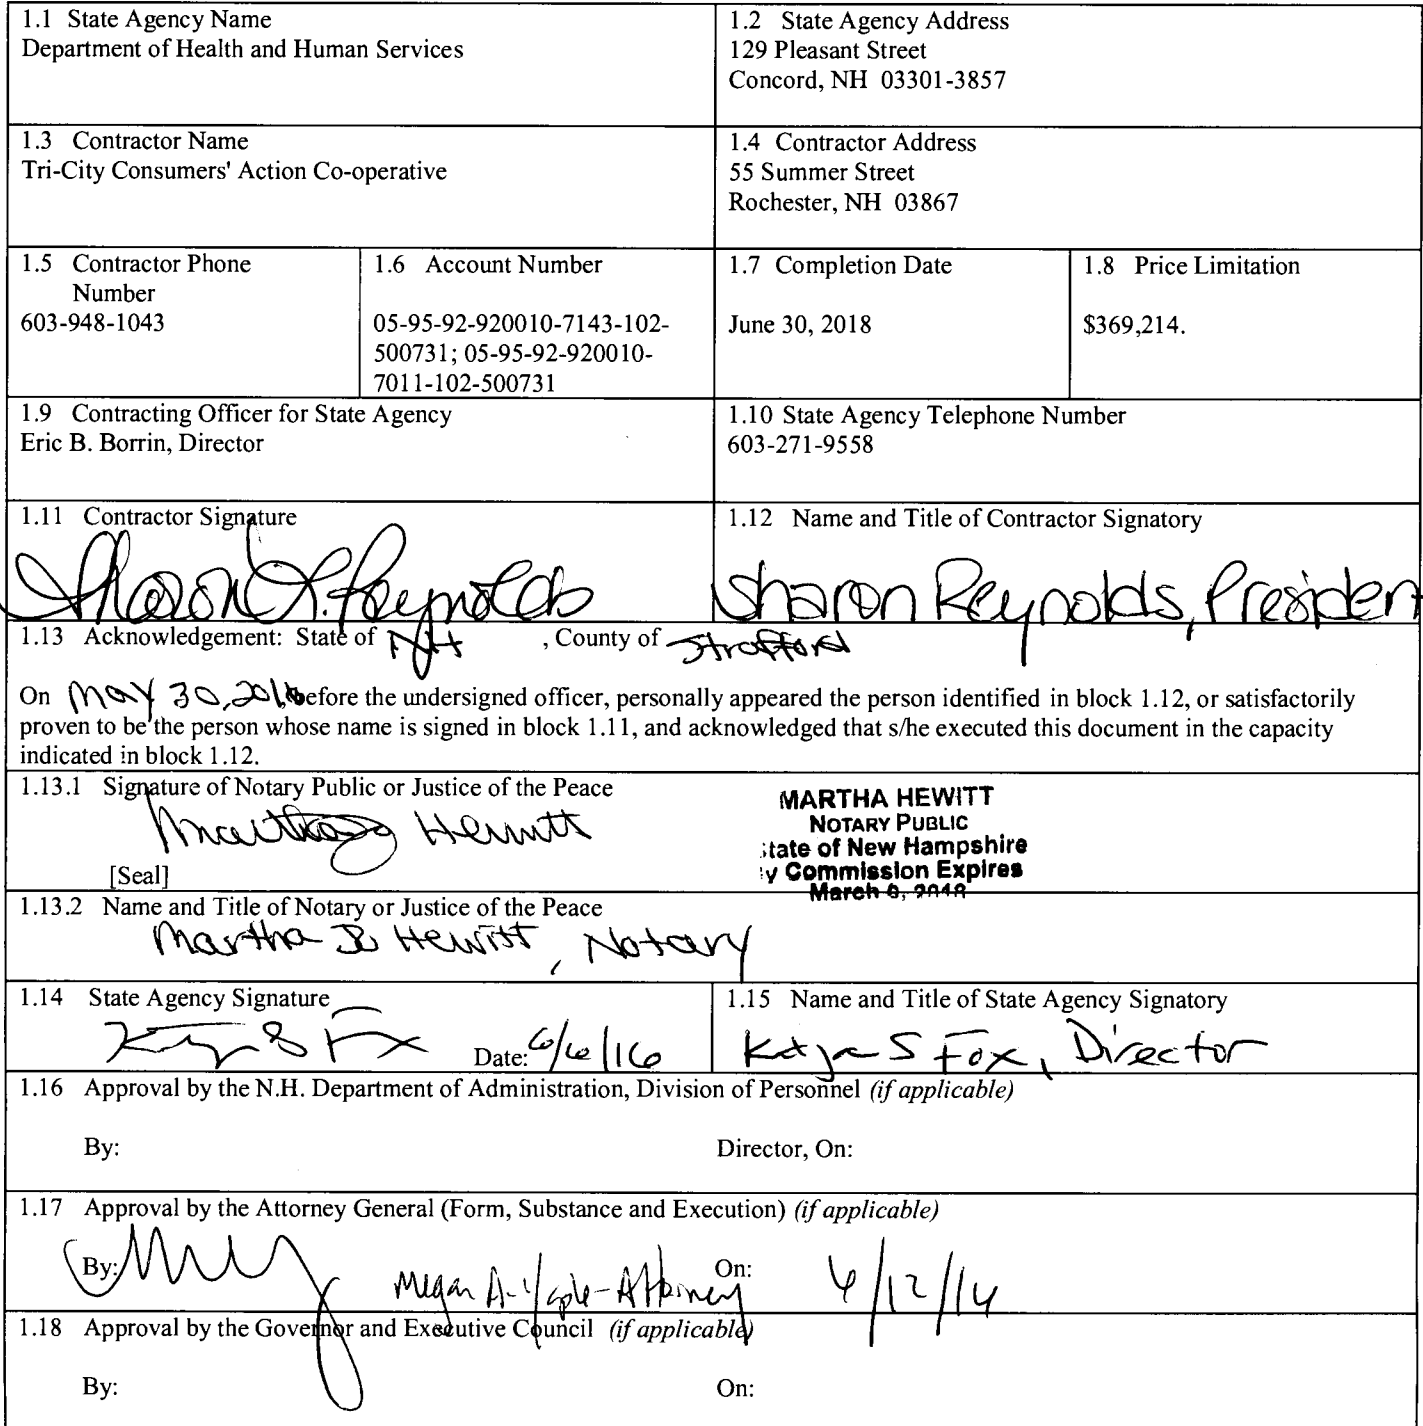 1.1 State Agency Name
Department of Health and Human Services
1.2 State Agency Address
129 Pleasant Street
Concord, NH 03301-3857
1.3 Contractor Name
Tri-City Consumers' Action Co-operative
1.4 Contractor Address
55 Summer Street
Rochester, NH 03867
1.5 Contractor Phone
Number
603-948-1043
1.6 Account Number
05-95-92-920010-7143-102-
500731; 05-95-92-920010-
7011-102-500731
1.7 Completion Date
June 30, 2018
1.8 Price Limitation
$369,214.
1.9 Contracting Officer for State Agency
Eric B. Borrin, Director
1.10 State Agency Telephone Number
603-271-9558
1.11 Contractor Signature
Sharon L. Reynolds
1.12 Name and Title of Contractor Signatory
Sharon Reynolds, Presiden
1.13 Acknowledgement: State of NH , County of Strafford
On May 30, 2016, before the undersigned officer, personally appeared the person identified in block 1.12, or satisfactorily
proven to be the person whose name is signed in block 1.11, and acknowledged that s/he executed this document in the capacity
indicated in block 1.12.
1.13.1 Signature of Notary Public or Justice of the Peace
Hewitt
[Seal]
MARTHA HEWITT
NOTARY PUBLIC
tate of New Hampshire
y Commission Expires
March
1.13.2 Name and Title of Notary or Justice of the Peace
Martha Hewitt, Notary
1.14 State Agency Signature
Date: 6/6/16
1.15 Name and Title of State Agency Signatory
Katja S Fox, Director
1.16 Approval by the N.H. Department of Administration, Division of Personnel (if applicable)
By:
Director, On:
1.17 Approval by the Attorney General (Form, Substance and Execution) (if applicable)
By: Megan A. - Attorney
On: 6/12/16
1.18 Approval by the Governor and Executive Council (if applicable)
By:
On: